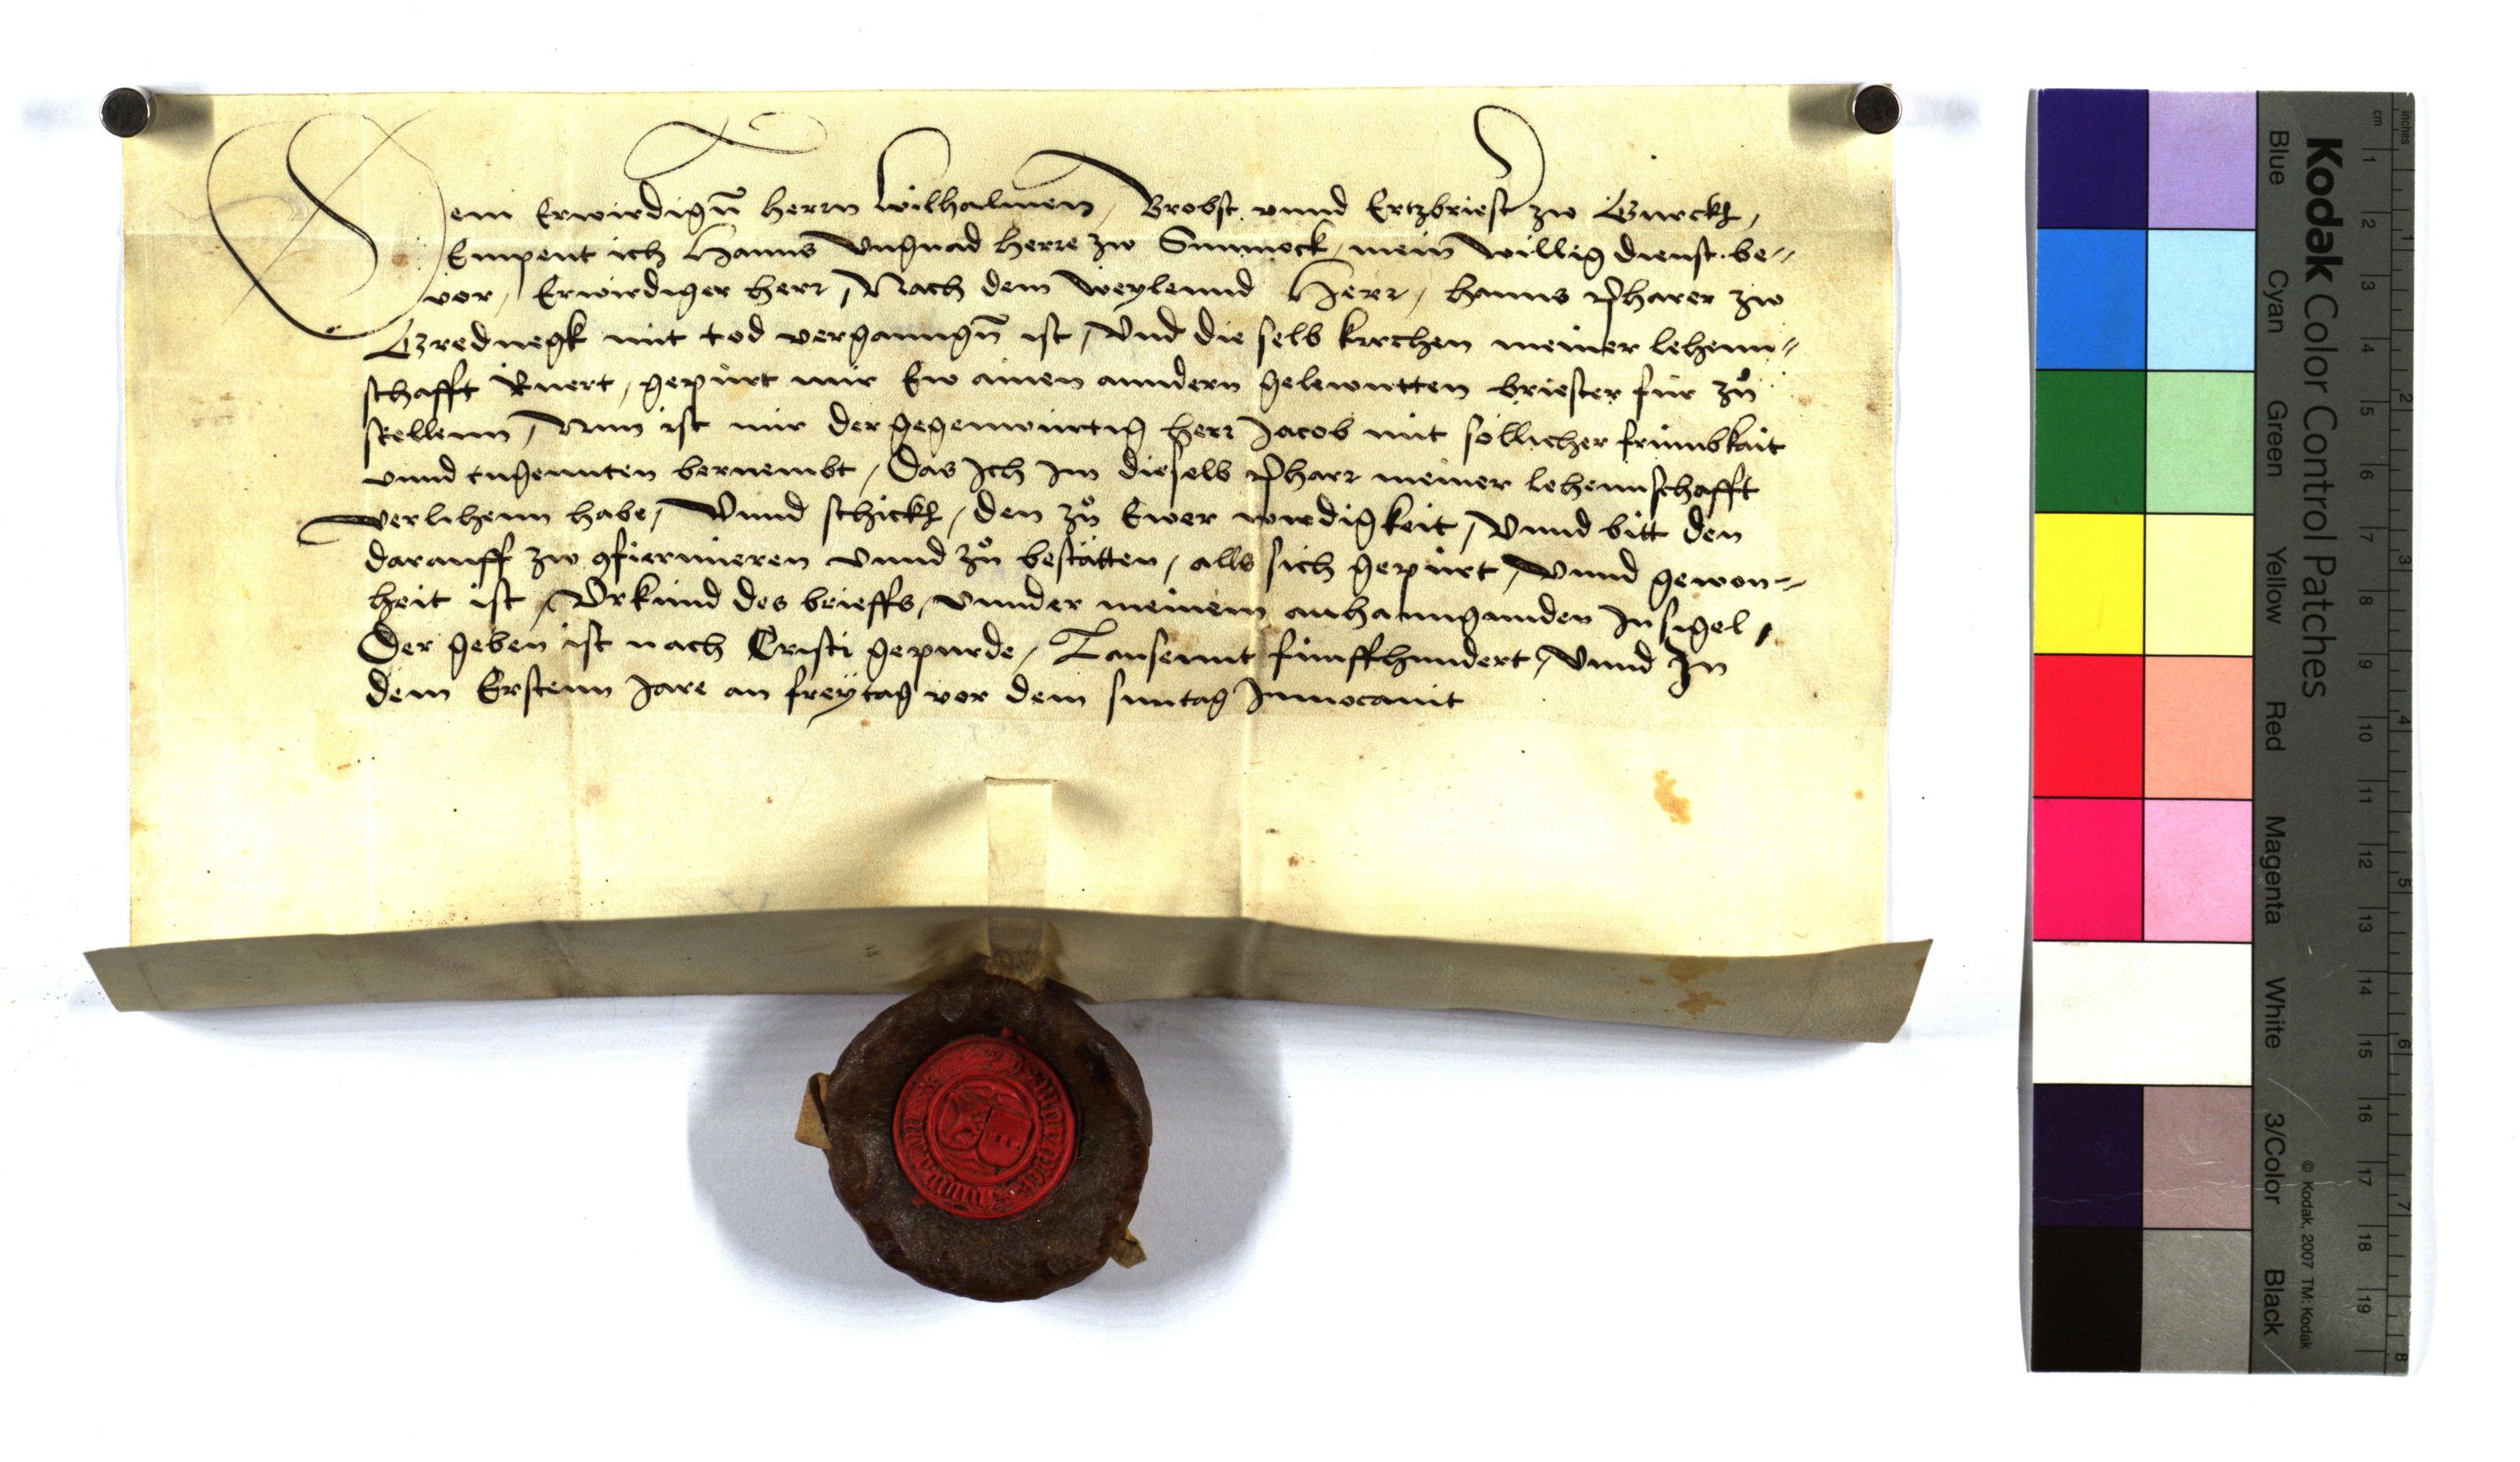 Dem Erwirdign̄ herrn Wilhalmen, Brobst vnnd Ertzbriest zw Gurckh,
Empeut ich Hanns Vngnad herre zw Sunneck, mein willig dienst be=
vor, Erwirdiger herr, Nach dem Weylennd Herr, hanns Pharer zw
Grednegk mit tod verganngn̄ ist, Vnd die selb kirchen meiner lehenn=
schafft Ruert, gepürt mir Ew ainen anndern gelewntten briester für zů
stellenn, Nun ist mir der gegenwürtig herr Jacob mit söllicher frümbkait
vnnd tugennten bernembt, Das Ich Im dieselb Pharr meiner lehennschafft
verlihenn habe, Vnnd schickh, den zů Ewer wirdigkeit, Vnnd bitt den
darauff zw ꝯfiermieren vnnd zů bestätten, alls sich gepürt, Vnnd gewon=
heit ist, Vrkünd des brieffs, vnnder meinem anhanngunden Insigel,
Der geben ist nach Cristi gepurde, Tausennt fünffhundert, Vnnd In
dem Erstenn Jare an freÿtag vor dem suntag Innocauit
Kodak Color Control Patches
Blue Cyan Green Yellow Red Magenta White 3/Color Black
© Kodak, 2007 TM: Kodak
cm 1 2 3 4 5 6 7 8 9 10 11 12 13 14 15 16 17 18 19
Inches 1 2 3 4 5 6 7 8